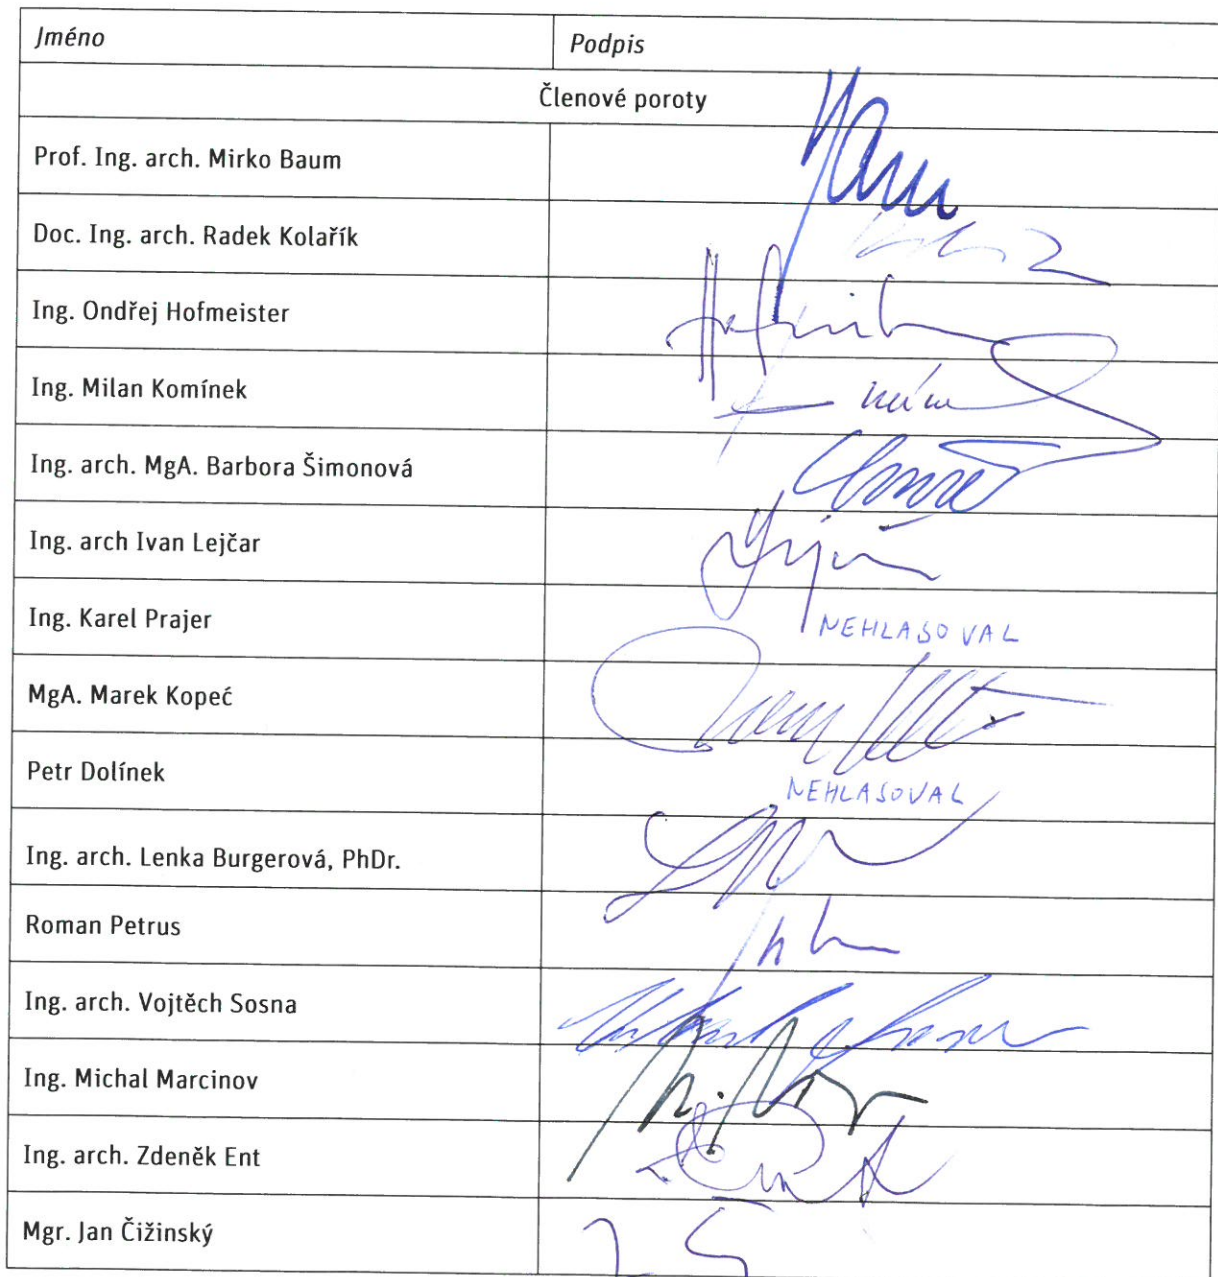 Jméno Podpis
Členové poroty
Prof. Ing. arch. Mirko Baum
Doc. Ing. arch. Radek Kolařík
Ing. Ondřej Hofmeister
Ing. Milan Komínek
Ing. arch. MgA. Barbora Šimonová
Ing. arch Ivan Lejčar
Ing. Karel Prajer NEHLASOVAL
MgA. Marek Kopeć
Petr Dolínek NEHLASOVAL
Ing. arch. Lenka Burgerová, PhDr.
Roman Petrus
Ing. arch. Vojtěch Sosna
Ing. Michal Marcinov
Ing. arch. Zdeněk Ent
Mgr. Jan Čižinský